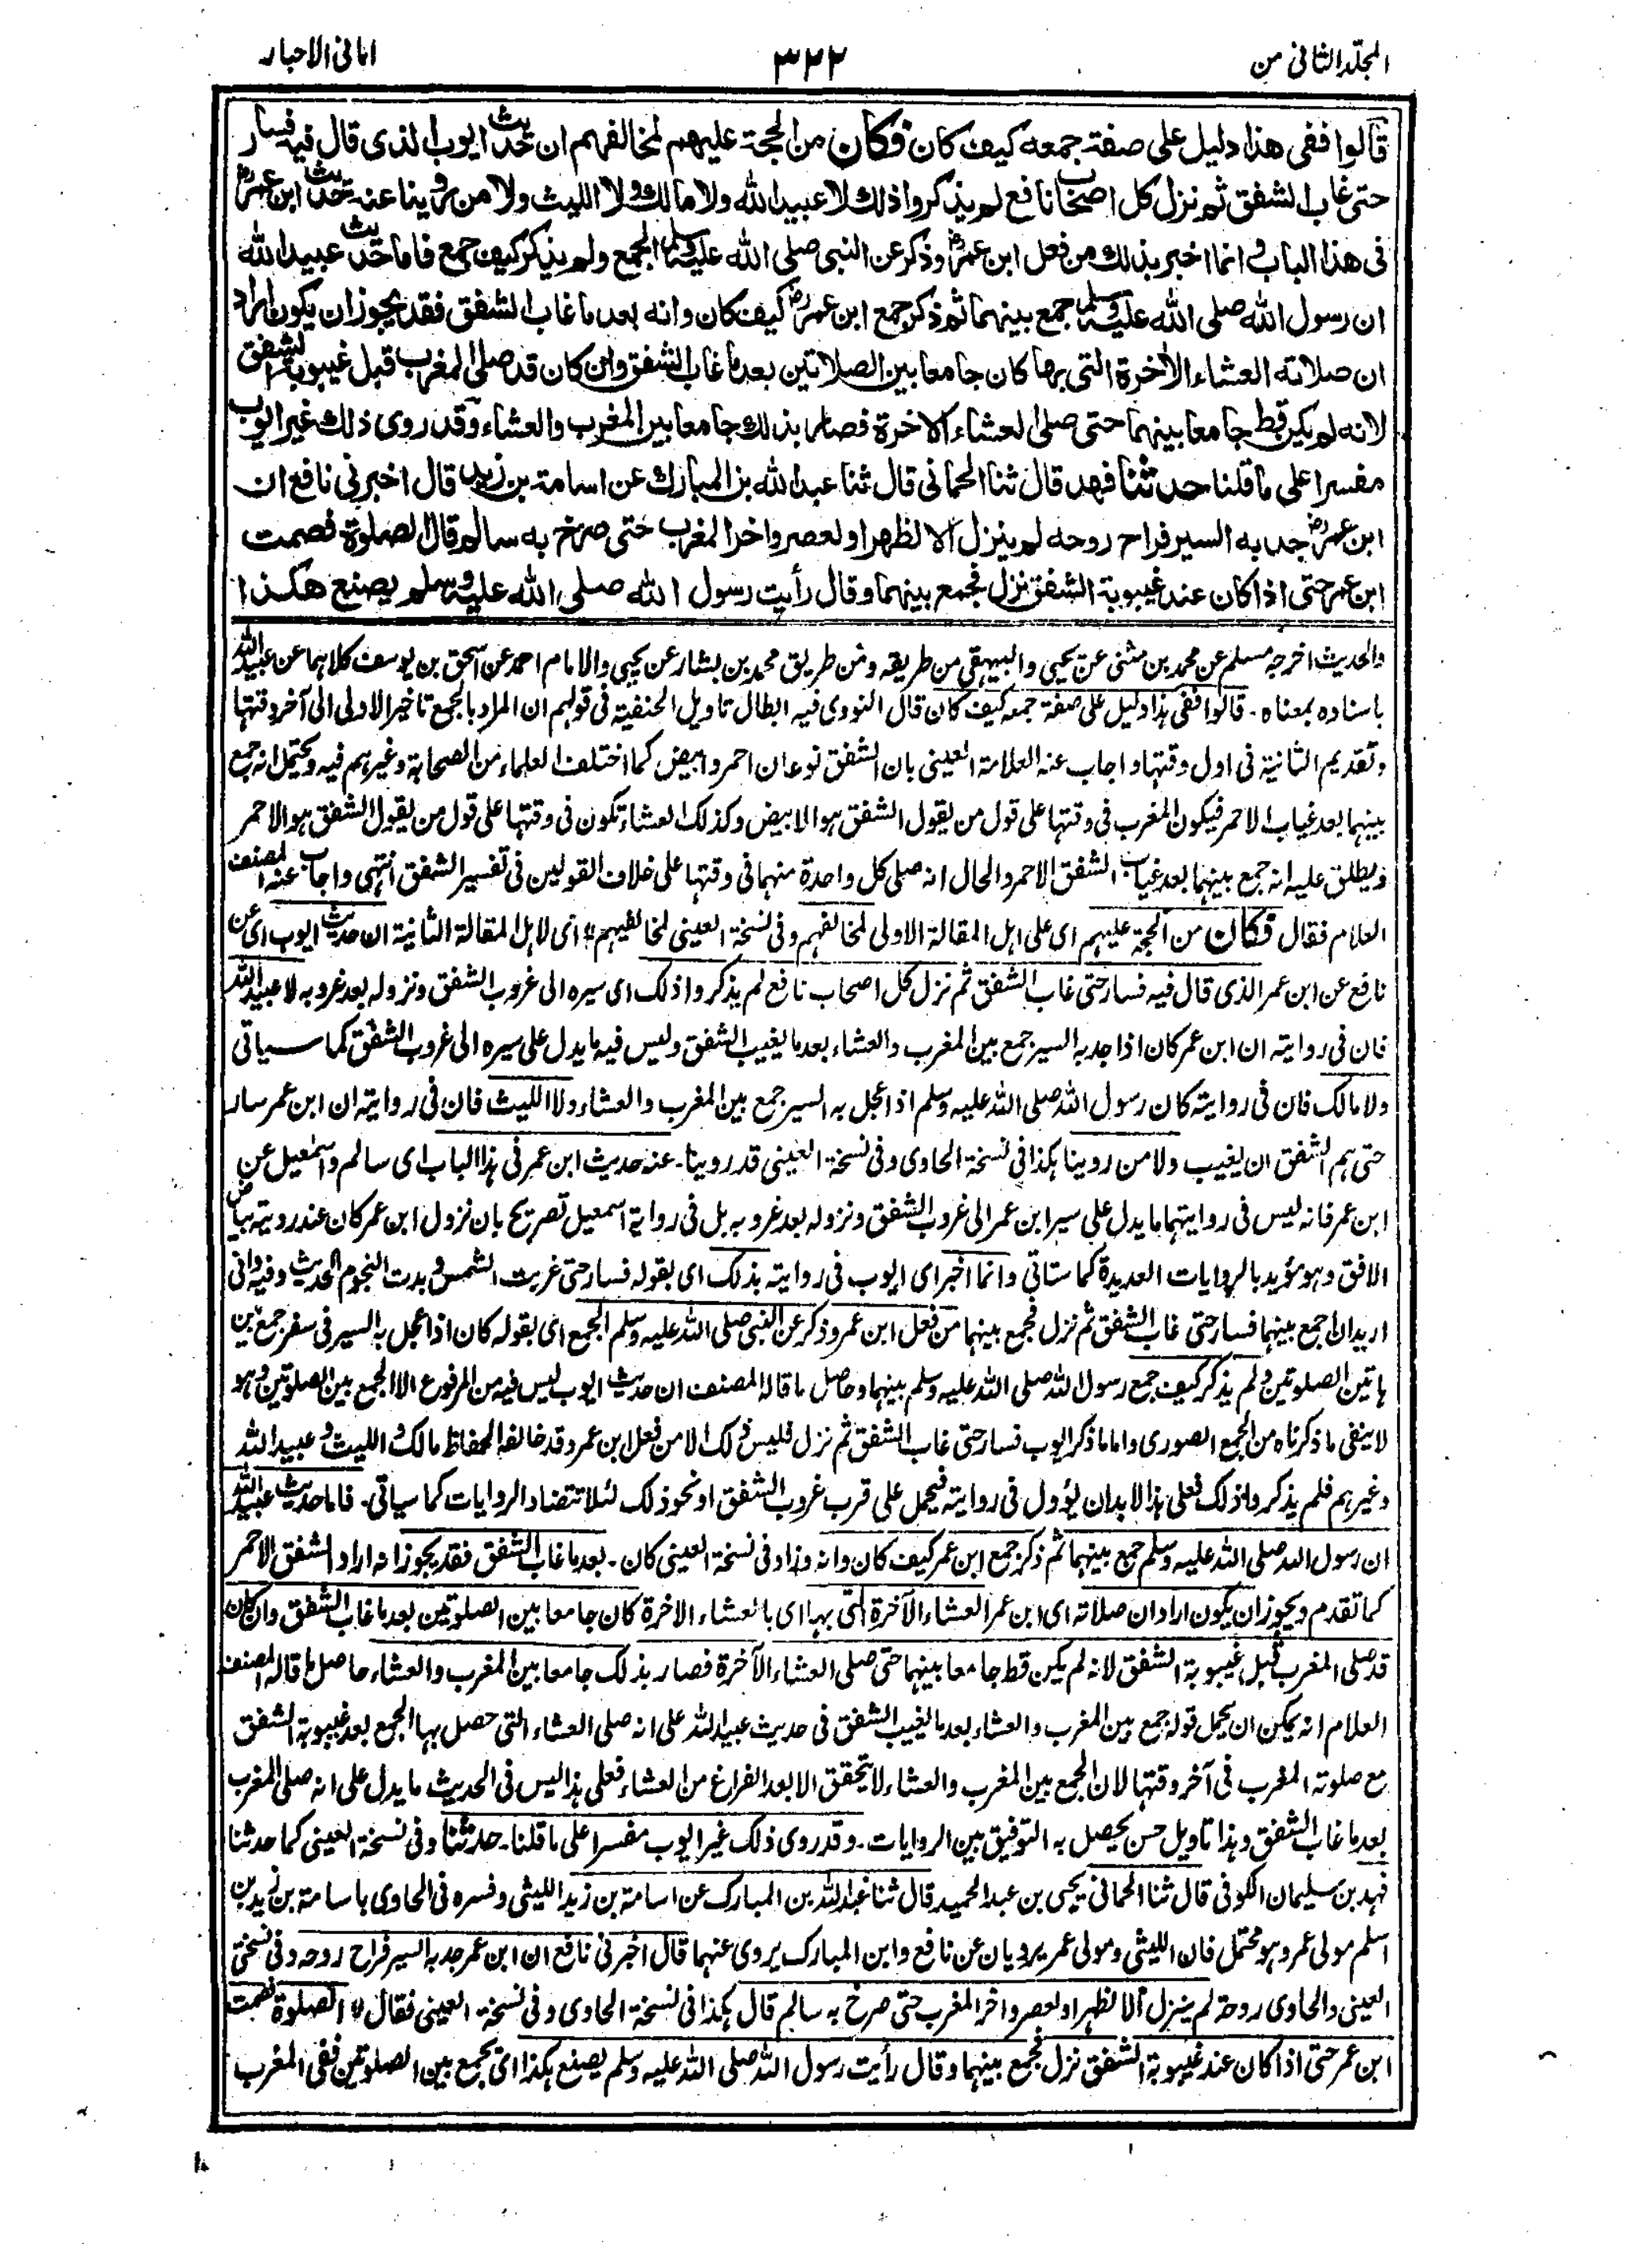 المجلد الثانی من
۳۲۲
امانی الاحبار
قالوا ففی هذا دلیل علی صفة جمعه کیف کان فکان من الحجة علیهم لمخالفهم ان حدیث ایوب الذی قال فیه فسار
حتی غاب الشفق ثم نزل کل اصحاب نافع لم یذکروا ذلك لا عبید الله ولا مالك ولا اللیث ولا من روینا عنه حدیث ابن عمرؓ
فی هذا الباب وانما اخبر بذلك من فعل ابن عمرؓ وذکر عن النبی صلی الله علیه وسلم الجمع ولم یذکر کیف جمع فاما حدیث عبید الله
ان رسول الله صلی الله علیه وسلم جمع بینهما ثم ذکر جمع ابن عمرؓ کیف کان وانه بعد ما غاب الشفق فقد یجوز ان یکون اراد
ان صلاته العشاء الاخرة التی بها کان جامعا بین الصلاتین بعد ما غاب الشفق وان کان قد صلی المغرب قبل غیبوبة الشفق
لانه لم یکن قط جامعا بینهما حتی صلی العشاء الاخرة فصار بذلك جامعا بین المغرب والعشاء وقد روی ذلك غیر ایوب
مفسرا علی ما قلنا حدثنا فهد قال ثنا الحمانی قال ثنا عبد الله بن المبارك عن اسامة بن زید قال اخبرنی نافع ان
ابن عمرؓ جد به السیر فراح روحه لم ینزل الا لظهر او لعصر واخر المغرب حتی صرخ به سالم قال الصلوة فصمت
ابن عمر حتی اذا کان عند غیبوبة الشفق نزل فجمع بینهما وقال رأیت رسول الله صلی الله علیه وسلم یصنع هکذا
والحدیث اخرجه مسلم عن محمد بن مثنی عن یحیی والبیهقی من طریقه ومن طریق محمد بن بشار عن یحیی والامام احمد عن اسحق بن یوسف کلاهما عن عبید الله
باسناده بمعناه ۔ قالوا ففی هذا دلیل علی صفة جمعه کیف کان قال النووی فیه ابطال تاویل الحنفیة فی قولهم ان المراد بالجمع تاخیر الاولی الی آخر وقتها
وتقدیم الثانیة فی اول وقتها واجاب عنه العلامة العینی بان الشفق نوعان احمر وابیض کما اختلف العلماء من الصحابة وغیرهم فیه ویحتمل انه جمع
بینهما بعد غیاب الاحمر فیکون المغرب فی وقتها علی قول من یقول الشفق هو الابیض وکذلك العشاء تکون فی وقتها علی قول من یقول الشفق هو الاحمر
ویطلق علیه انه جمع بینهما بعد غیاب الشفق الاحمر والحال انه صلی کل واحدة منهما فی وقتها علی خلاف القولین فی تفسیر الشفق انتهی واجاب عنه المصنف
العلام فقال فکان من الحجة علیهم ای علی اهل المقالة الاولی لمخالفهم وفی نسخة العینی لمخالفیهم ای لاهل المقالة الثانیة ان حدیث ایوب ای عن
نافع عن ابن عمر الذی قال فیه فسار حتی غاب الشفق ثم نزل کل اصحاب نافع لم یذکروا ذلك ای سیره الی غروب الشفق ونزوله بعد غروبه لا عبید الله
فان فی روایته ان ابن عمر کان اذا جد به السیر جمع بین المغرب والعشاء بعد ما یغیب الشفق ولیس فیه ما یدل علی سیره الی غروب الشفق کما سیاتی
ولا مالك فان فی روایته کان رسول الله صلی الله علیه وسلم اذا عجل به السیر جمع بین المغرب والعشاء ولا اللیث فان فی روایته ان ابن عمر سار
حتی هم الشفق ان یغیب ولا من روینا هکذا فی نسخة الحاوی وفی نسخة العینی قد روینا ۔ عنه حدیث ابن عمر فی هذا الباب ای سالم واسمعیل عن
ابن عمر فانه لیس فی روایتهما ما یدل علی سیر ابن عمر الی غروب الشفق ونزوله بعد غروبه بل فی روایة اسمعیل تصریح بان نزول ابن عمر کان عند رویته بیاض
الافق وهو مؤید بالروایات العدیدة کما ستاتی وانما اخبر ای ایوب فی روایته بذلك ای بقوله فسار حتی غربت الشمس وبدت النجوم الحدیث وفیه وانی
ارید ان اجمع بینهما فسار حتی غاب الشفق ثم نزل فجمع بینهما من فعل ابن عمر وذکر عن النبی صلی الله علیه وسلم الجمع ای بقوله کان اذا عجل به السیر فی سفر جمع بین
هاتین الصلوتین ولم یذکر کیف جمع رسول الله صلی الله علیه وسلم بینهما وحاصل ما قاله المصنف ان حدیث ایوب لیس فیه من المرفوع الا الجمع بین الصلوتین وهو
لا ینفی ما ذکرناه من الجمع الصوری واما ما ذکر ایوب فسار حتی غاب الشفق ثم نزل فلیس ذلك الا من فعل ابن عمر وقد خالفه الحفاظ مالك واللیث وعبید الله
وغیرهم فلم یذکروا ذلك فعلی هذا لا بد ان یؤول فی روایته فیحمل علی قرب غروب الشفق او نحو ذلك لئلا تتضاد الروایات کما سیاتی ۔ فاما حدیث عبید الله
ان رسول الله صلی الله علیه وسلم جمع بینهما ثم ذکر جمع ابن عمر کیف کان وانه وزاد فی نسخة العینی کان ۔ بعد ما غاب الشفق فقد یجوز انه اراد الشفق الاحمر
کما تقدم ویجوز ان یکون اراد ان صلاته ای ابن عمر العشاء الآخرة التی بها ای بالعشاء الاخرة کان جامعا بین الصلوتین بعد ما غاب الشفق وان کان
قد صلی المغرب قبل غیبوبة الشفق لانه لم یکن قط جامعا بینهما حتی صلی العشاء الآخرة فصار بذلك جامعا بین المغرب والعشاء حاصل ما قاله المصنف
العلام انه یمکن ان یحمل قوله جمع بین المغرب والعشاء بعد ما یغیب الشفق فی حدیث عبید الله علی انه صلی العشاء التی حصل بها الجمع بعد غیبوبة الشفق
مع صلوته المغرب فی آخر وقتها لان الجمع بین المغرب والعشاء لا یتحقق الا بعد الفراغ من العشاء فعلی هذا لیس فی الحدیث ما یدل علی انه صلی المغرب
بعد ما غاب الشفق وهذا تاویل حسن یحصل به التوفیق بین الروایات ۔ وقد روی ذلك غیر ایوب مفسرا علی ما قلنا ۔ حدثنا وفی نسخة العینی کما حدثنا
فهد بن سلیمان الکوفی قال ثنا الحمانی یحیی بن عبد الحمید قال ثنا عبد الله بن المبارك عن اسامة بن زید اللیثی وفسره فی الحاوی باسامة بن زید بن
اسلم مولی عمر وهو محتمل فان اللیثی ومولی عمر یرویان عن نافع وابن المبارك یروی عنهما قال اخبرنی نافع ان ابن عمر جد به السیر فراح روحه وفی نسختی
العینی والحاوی روحة لم ینزل الا لظهر او لعصر واخر المغرب حتی صرخ به سالم قال هکذا فی نسخة الحاوی وفی نسخة العینی فقال الصلوة فصمت
ابن عمر حتی اذا کان عند غیبوبة الشفق نزل فجمع بینهما وقال رأیت رسول الله صلی الله علیه وسلم یصنع هکذا ای یجمع بین الصلوتین ففی المغرب